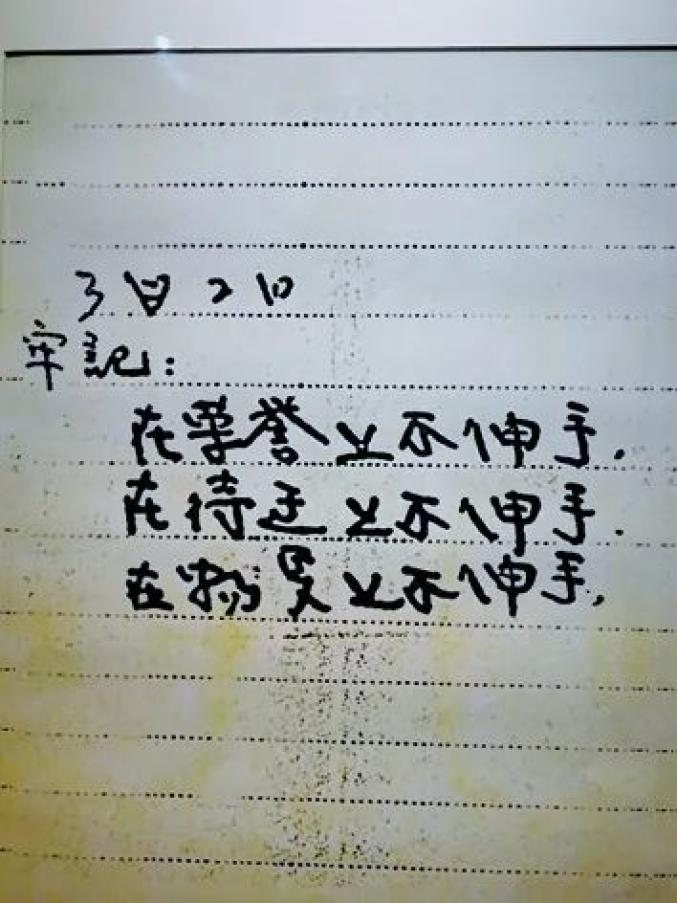 3月2日
牢記：
在荣誉上不伸手．
在待遇上不伸手．
在物质上不伸手．